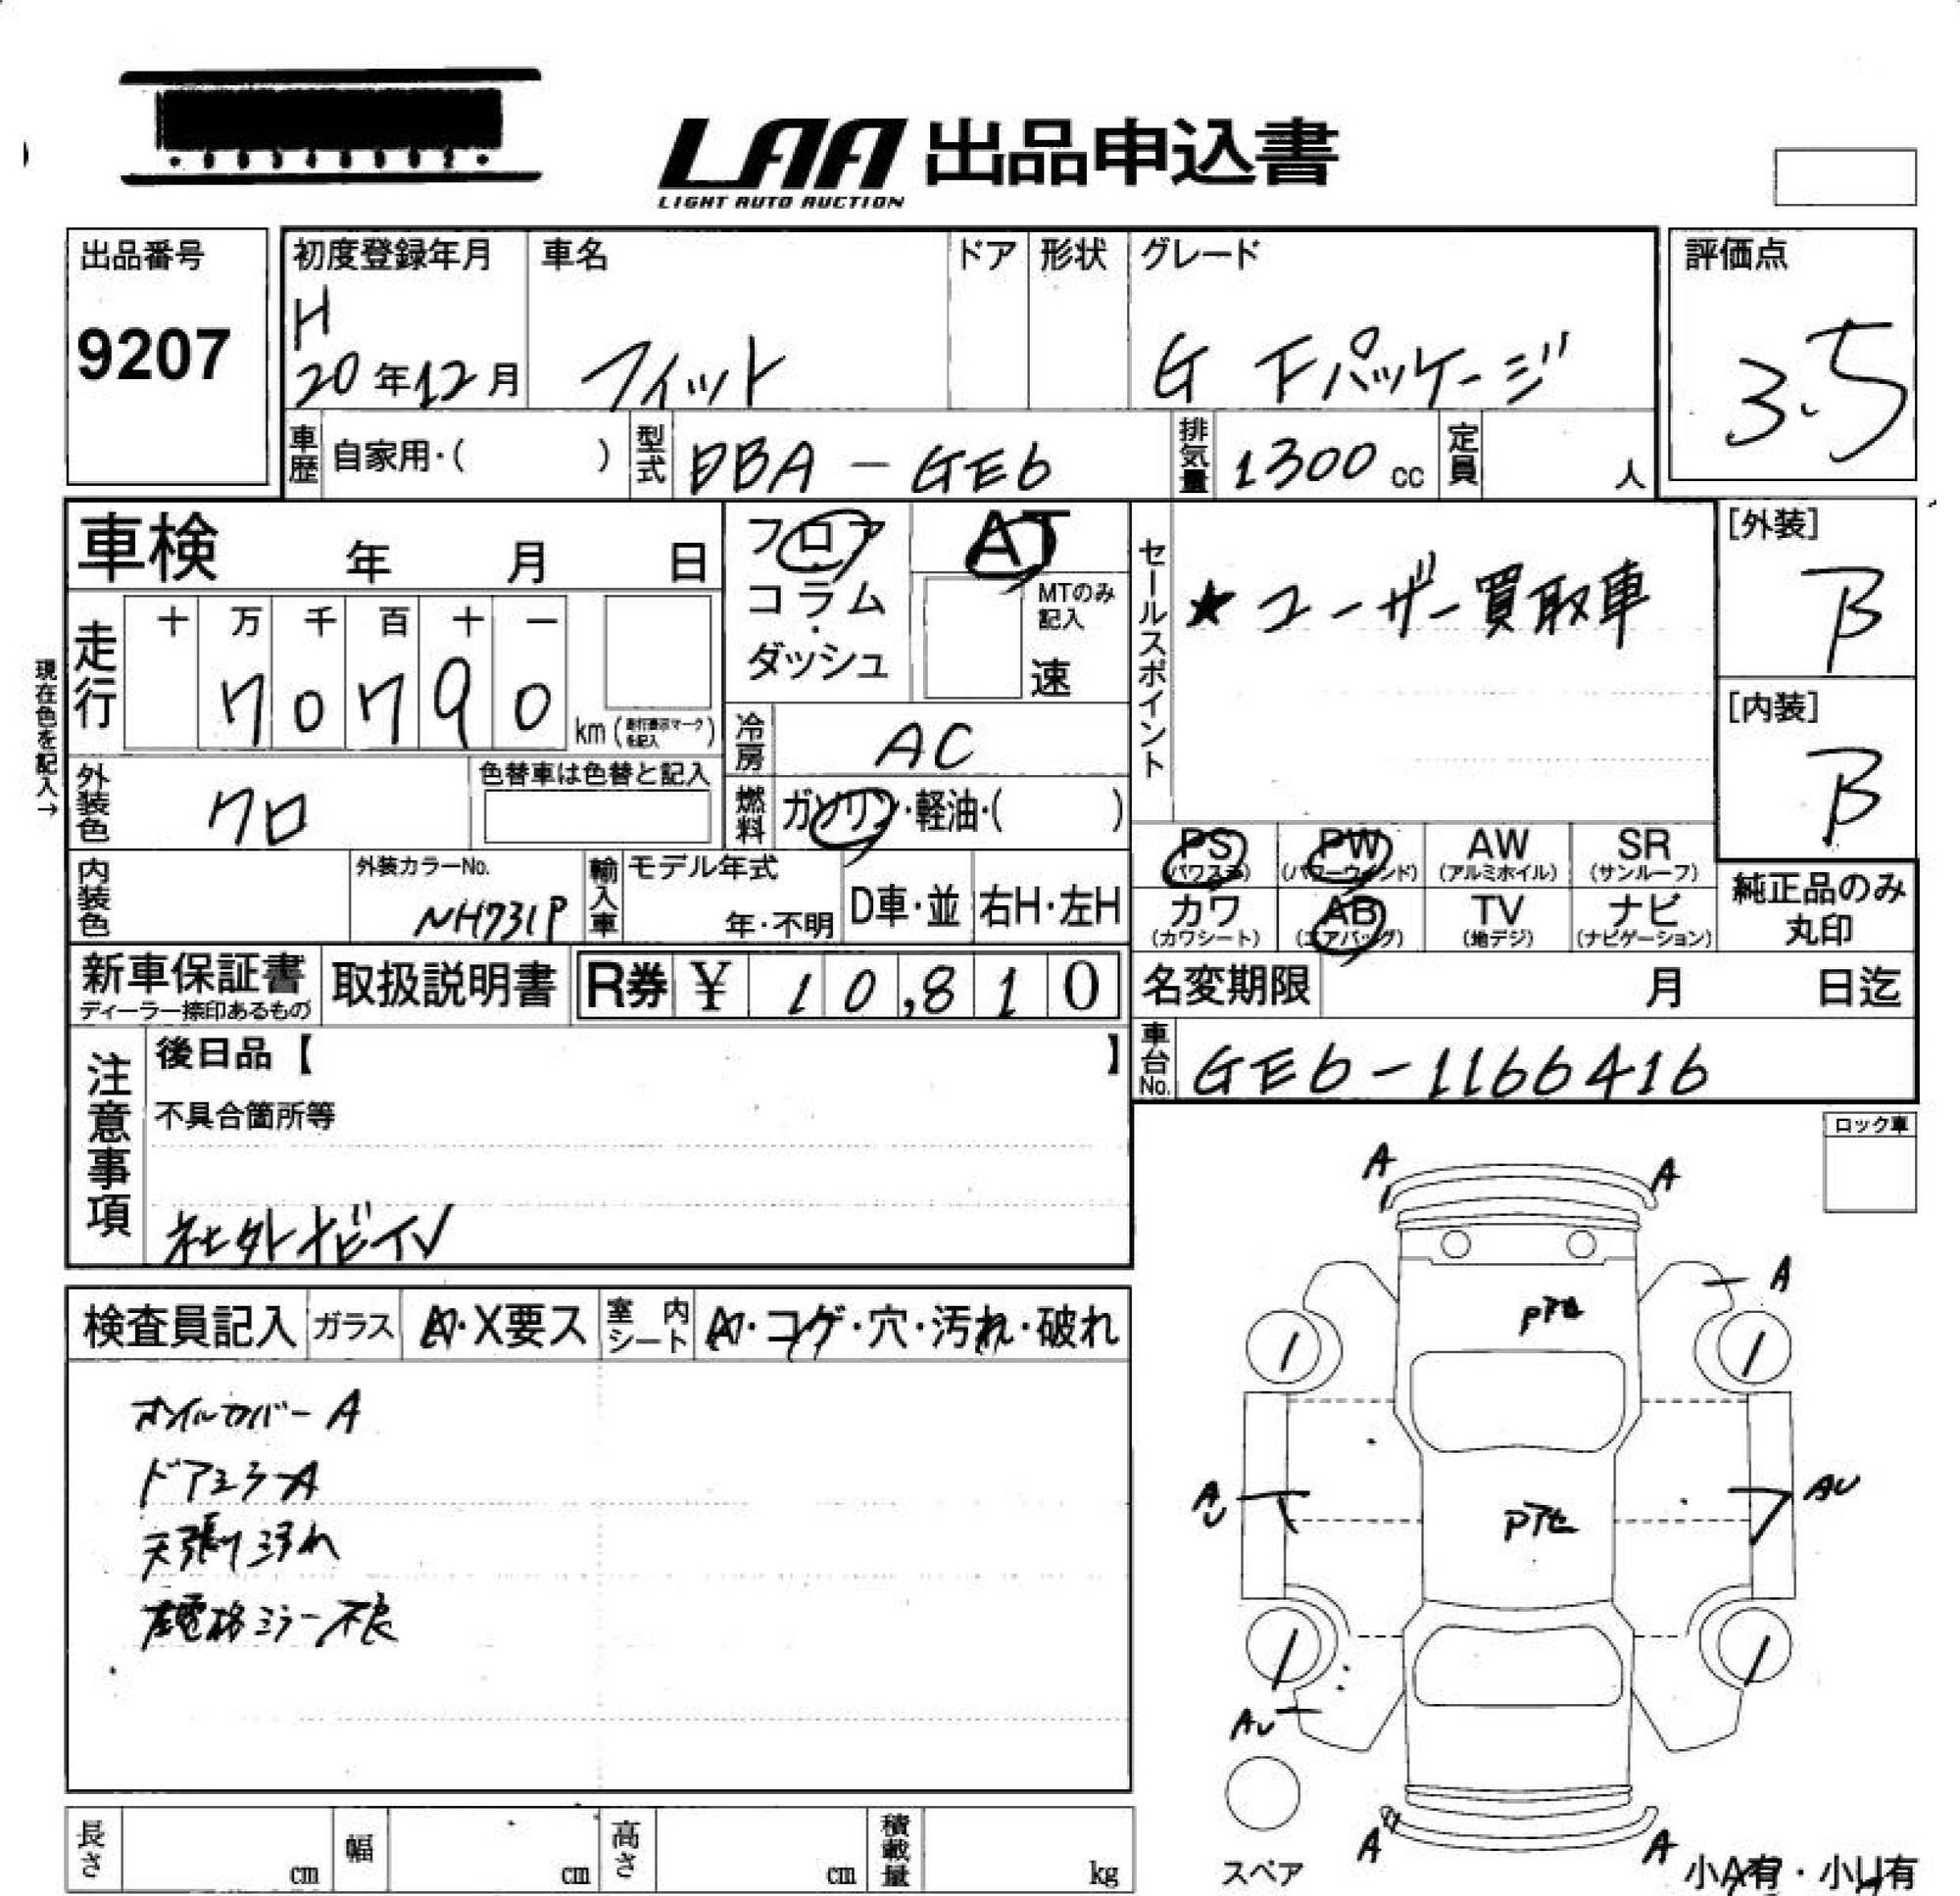 LAA 出品申込書
LIGHT AUTO AUCTION
出品番号
9207
初度登録年月 車名 ドア 形状 グレード
H
20年12月 フィット G Fパッケージ
評価点
3.5
車歴 自家用・( ) 型式 DBA-GE6 排気量 1300 cc 定員 人
車検 年 月 日
フロア
コラム
・
ダッシュ
AT
MTのみ
記入
速
セールスポイント
★ユーザー買取車
[外装]
B
[内装]
B
現在色を記入→
走行
十 万 千 百 十 一
7 0 7 9 0 km
冷房 AC
外装色 クロ 色替車は色替と記入
燃料 ガソリン・軽油・( )
PS (パワステ) PW (パワーウィンド) AW (アルミホイル) SR (サンルーフ)
カワ (カワシート) AB (エアバッグ) TV (地デジ) ナビ (ナビゲーション)
純正品のみ
丸印
内装色 外装カラーNo. NH731P
輸入車 モデル年式 年・不明 D車・並 右H・左H
新車保証書
ディーラー捺印あるもの
取扱説明書 R券 ¥ 10,810
名変期限 月 日迄
車台No. GE6-1166416
注意事項
後日品【 】
不具合箇所等
社外ナビイン
ロック車
検査員記入 ガラス A・X要ス 室内シート A・コゲ・穴・汚れ・破れ
オイルカバーA
ドアミラーA
天張り汚れ
電格ミラー不良
A A
A
Pアセ
1 1
AU AU
Pアセ
1 1
AU
A A
スペア
小A有・小U有
長さ cm 幅 cm 高さ cm 積載量 kg